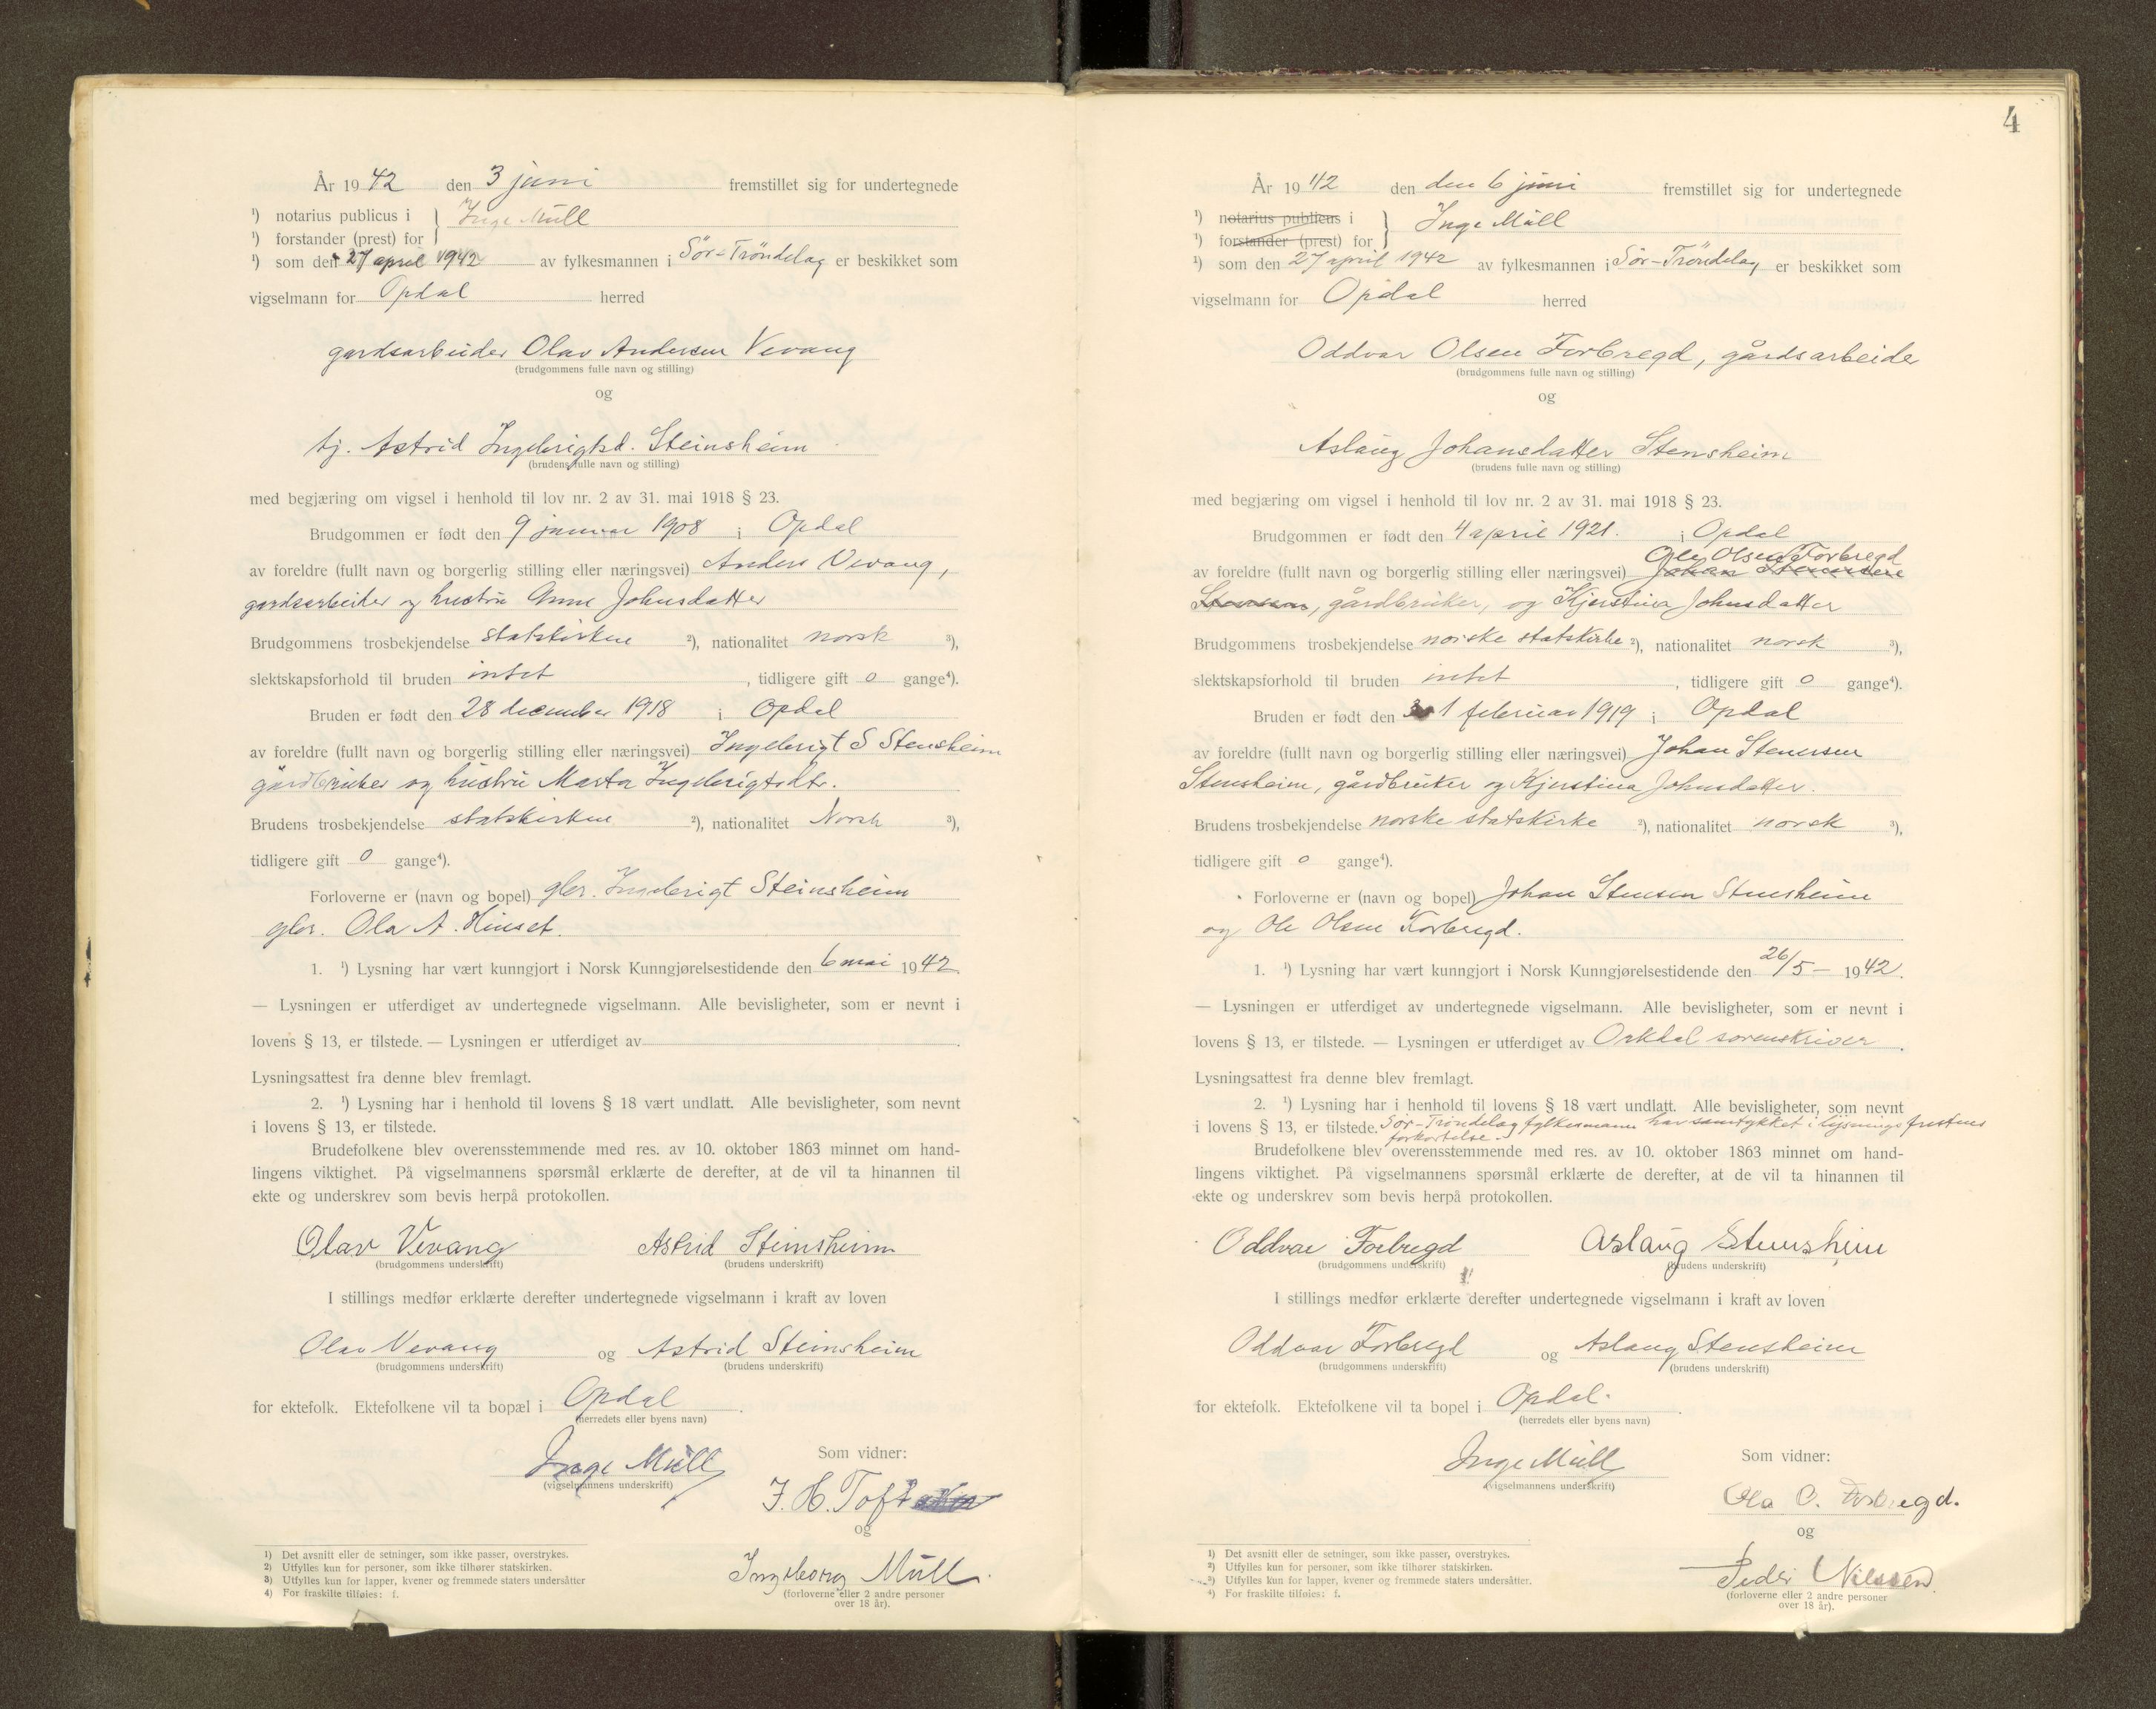 År 1942 den 3 juni fremstillet sig for undertegnede
¹) notarius publicus i } Inge Müll
¹) forstander (prest) for
¹) som den 27 april 1942 av fylkesmannen i Sör-Tröndelag er beskikket som
vigselmann for Opdal herred
gardsarbeider Olav Andersen Vevang
(brudgommens fulle navn og stilling)
og
tj. Astrid Ingebrigtsd. Steinsheim
(brudens fulle navn og stilling)
med begjæring om vigsel i henhold til lov nr. 2 av 31. mai 1918 § 23.
Brudgommen er født den 9 januar 1908 i Opdal
av foreldre (fullt navn og borgerlig stilling eller næringsvei) Anders Vevang,
gardsarbeider og hustru Anne Johnsdatter
Brudgommens trosbekjendelse statskirken ²), nationalitet norsk ³),
slektskapsforhold til bruden intet, tidligere gift 0 gange⁴).
Bruden er født den 28 december 1918 i Opdal
av foreldre (fullt navn og borgerlig stilling eller næringsvei) Ingebrigt S Stensheim
gårdbruker og hustru Marta Ingebrigtsdtr.
Brudens trosbekjendelse statskirken ²), nationalitet Norsk ³),
tidligere gift 0 gange⁴).
Forloverne er (navn og bopel) gbr. Ingebrigt Steinsheim
gbr. Ola A. Hinset.
1. ¹) Lysning har vært kunngjort i Norsk Kunngjørelsestidende den 6 mai 1942.
— Lysningen er utferdiget av undertegnede vigselmann. Alle bevisligheter, som er nevnt i
lovens § 13, er tilstede. — Lysningen er utferdiget av .
Lysningsattest fra denne blev fremlagt.
2. ¹) Lysning har i henhold til lovens § 18 vært undlatt. Alle bevisligheter, som nevnt
i lovens § 13, er tilstede.
Brudefolkene blev overensstemmende med res. av 10. oktober 1863 minnet om hand-
lingens viktighet. På vigselmannens spørsmål erklærte de derefter, at de vil ta hinannen til
ekte og underskrev som bevis herpå protokollen.
Olav Vevang Astrid Steinsheim
(brudgommens underskrift) (brudens underskrift)
I stillings medfør erklærte derefter undertegnede vigselmann i kraft av loven
Olav Vevang og Astrid Steinsheim
(brudgommens underskrift) (brudens underskrift)
for ektefolk. Ektefolkene vil ta bopæl i Opdal.
(herredets eller byens navn)
Som vidner:
Inge Müll
(vigselmannens underskrift)
J. H. Toft
og
Ingeborg Müll.
(forloverne eller 2 andre personer
over 18 år).
1) Det avsnitt eller de setninger, som ikke passer, overstrykes.
2) Utfylles kun for personer, som ikke tilhører statskirken.
3) Utfylles kun for lapper, kvener og fremmede staters undersåtter
4) For fraskilte tilføies: f.
4
År 1942 den den 6 juni fremstillet sig for undertegnede
¹) notarius publicus i } Inge Müll
¹) forstander (prest) for
¹) som den 27 april 1942 av fylkesmannen i Sör-Tröndelag er beskikket som
vigselmann for Opdal herred
Oddvar Olsen Forbregd, gårdsarbeide
(brudgommens fulle navn og stilling)
og
Aslaug Johansdatter Stensheim
(brudens fulle navn og stilling)
med begjæring om vigsel i henhold til lov nr. 2 av 31. mai 1918 § 23.
Brudgommen er født den 4 april 1921. i Opdal
Ole Olsen Forbregd
av foreldre (fullt navn og borgerlig stilling eller næringsvei) Johan Stenersen
, gårdbruker, og Kjerstina Johnsdatter
Brudgommens trosbekjendelse norske statskirke ²), nationalitet norsk ³),
slektskapsforhold til bruden intet, tidligere gift 0 gange⁴).
Bruden er født den 1 februar 1919 i Opdal
av foreldre (fullt navn og borgerlig stilling eller næringsvei) Johan Stenersen
Stensheim, gårdbruker og Kjerstina Johnsdatter.
Brudens trosbekjendelse norske statskirke ²), nationalitet norsk ³),
tidligere gift 0 gange⁴).
Forloverne er (navn og bopel) Johan Stensen Stensheim
og Ole Olsen Forbregd.
1. ¹) Lysning har vært kunngjort i Norsk Kunngjørelsestidende den 26/5 – 1942.
— Lysningen er utferdiget av undertegnede vigselmann. Alle bevisligheter, som er nevnt i
lovens § 13, er tilstede. — Lysningen er utferdiget av Orkdal sorenskriver.
Lysningsattest fra denne blev fremlagt.
2. ¹) Lysning har i henhold til lovens § 18 vært undlatt. Alle bevisligheter, som nevnt
i lovens § 13, er tilstede. Sör-Tröndelag fylkesmann har samtykket i lysnings fristens
forkortelse.
Brudefolkene blev overensstemmende med res. av 10. oktober 1863 minnet om hand-
lingens viktighet. På vigselmannens spørsmål erklærte de derefter, at de vil ta hinannen til
ekte og underskrev som bevis herpå protokollen.
Oddvar Forbregd Aslaug Stensheim
(brudgommens underskrift) (brudens underskrift)
I stillings medfør erklærte derefter undertegnede vigselmann i kraft av loven
Oddvar Forbregd og Aslaug Stensheim
(brudgommens underskrift) (brudens underskrift)
for ektefolk. Ektefolkene vil ta bopel i Opdal.
(herredets eller byens navn)
Som vidner:
Inge Müll
(vigselmannens underskrift)
Ola O. Forbregd.
og
Peder Nilssen.
(forloverne eller 2 andre personer
over 18 år).
¹) Det avsnitt eller de setninger, som ikke passer, overstrykes.
²) Utfylles kun for personer, som ikke tilhører statskirken.
³) Utfylles kun for lapper, kvener og fremmede staters undersåtter.
⁴) For fraskilte tilføies: f.